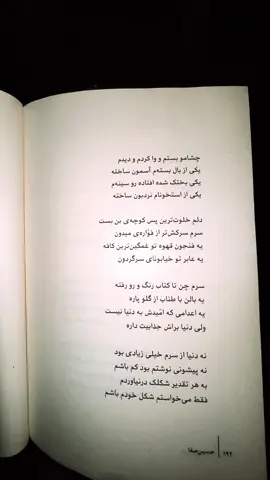 چشامو بستم و وا کردم و دیدم
یکی از بال بسته‌م آسمون ساخته
یکی بختک شده افتاده رو سینه‌م
یکی از استخونام نردبون ساخته
دلم خلوت‌ترین پس کوچه‌ی بن بست
سرم سرکش‌تر از فوّاره‌ی میدون
یه فنجون قهوه تو غمگین‌ترین کافه
یه عابر تو خیابونای سرگردون
سرم چن تا کتاب رنگ و رو رفته
یه بالن با طناب از گلو پاره
یه اعدامی که امّیدش به دنیا نیست
ولی دنیا براش جذابیت داره
نه دنیا از سرم خیلی زیادی بود
نه پیشونی نوشتم بود کم باشم
به هر تقدیر شکلک درنیاوردم
فقط می‌خواستم شکل خودم باشم
۱۹۲ | حسین صفا